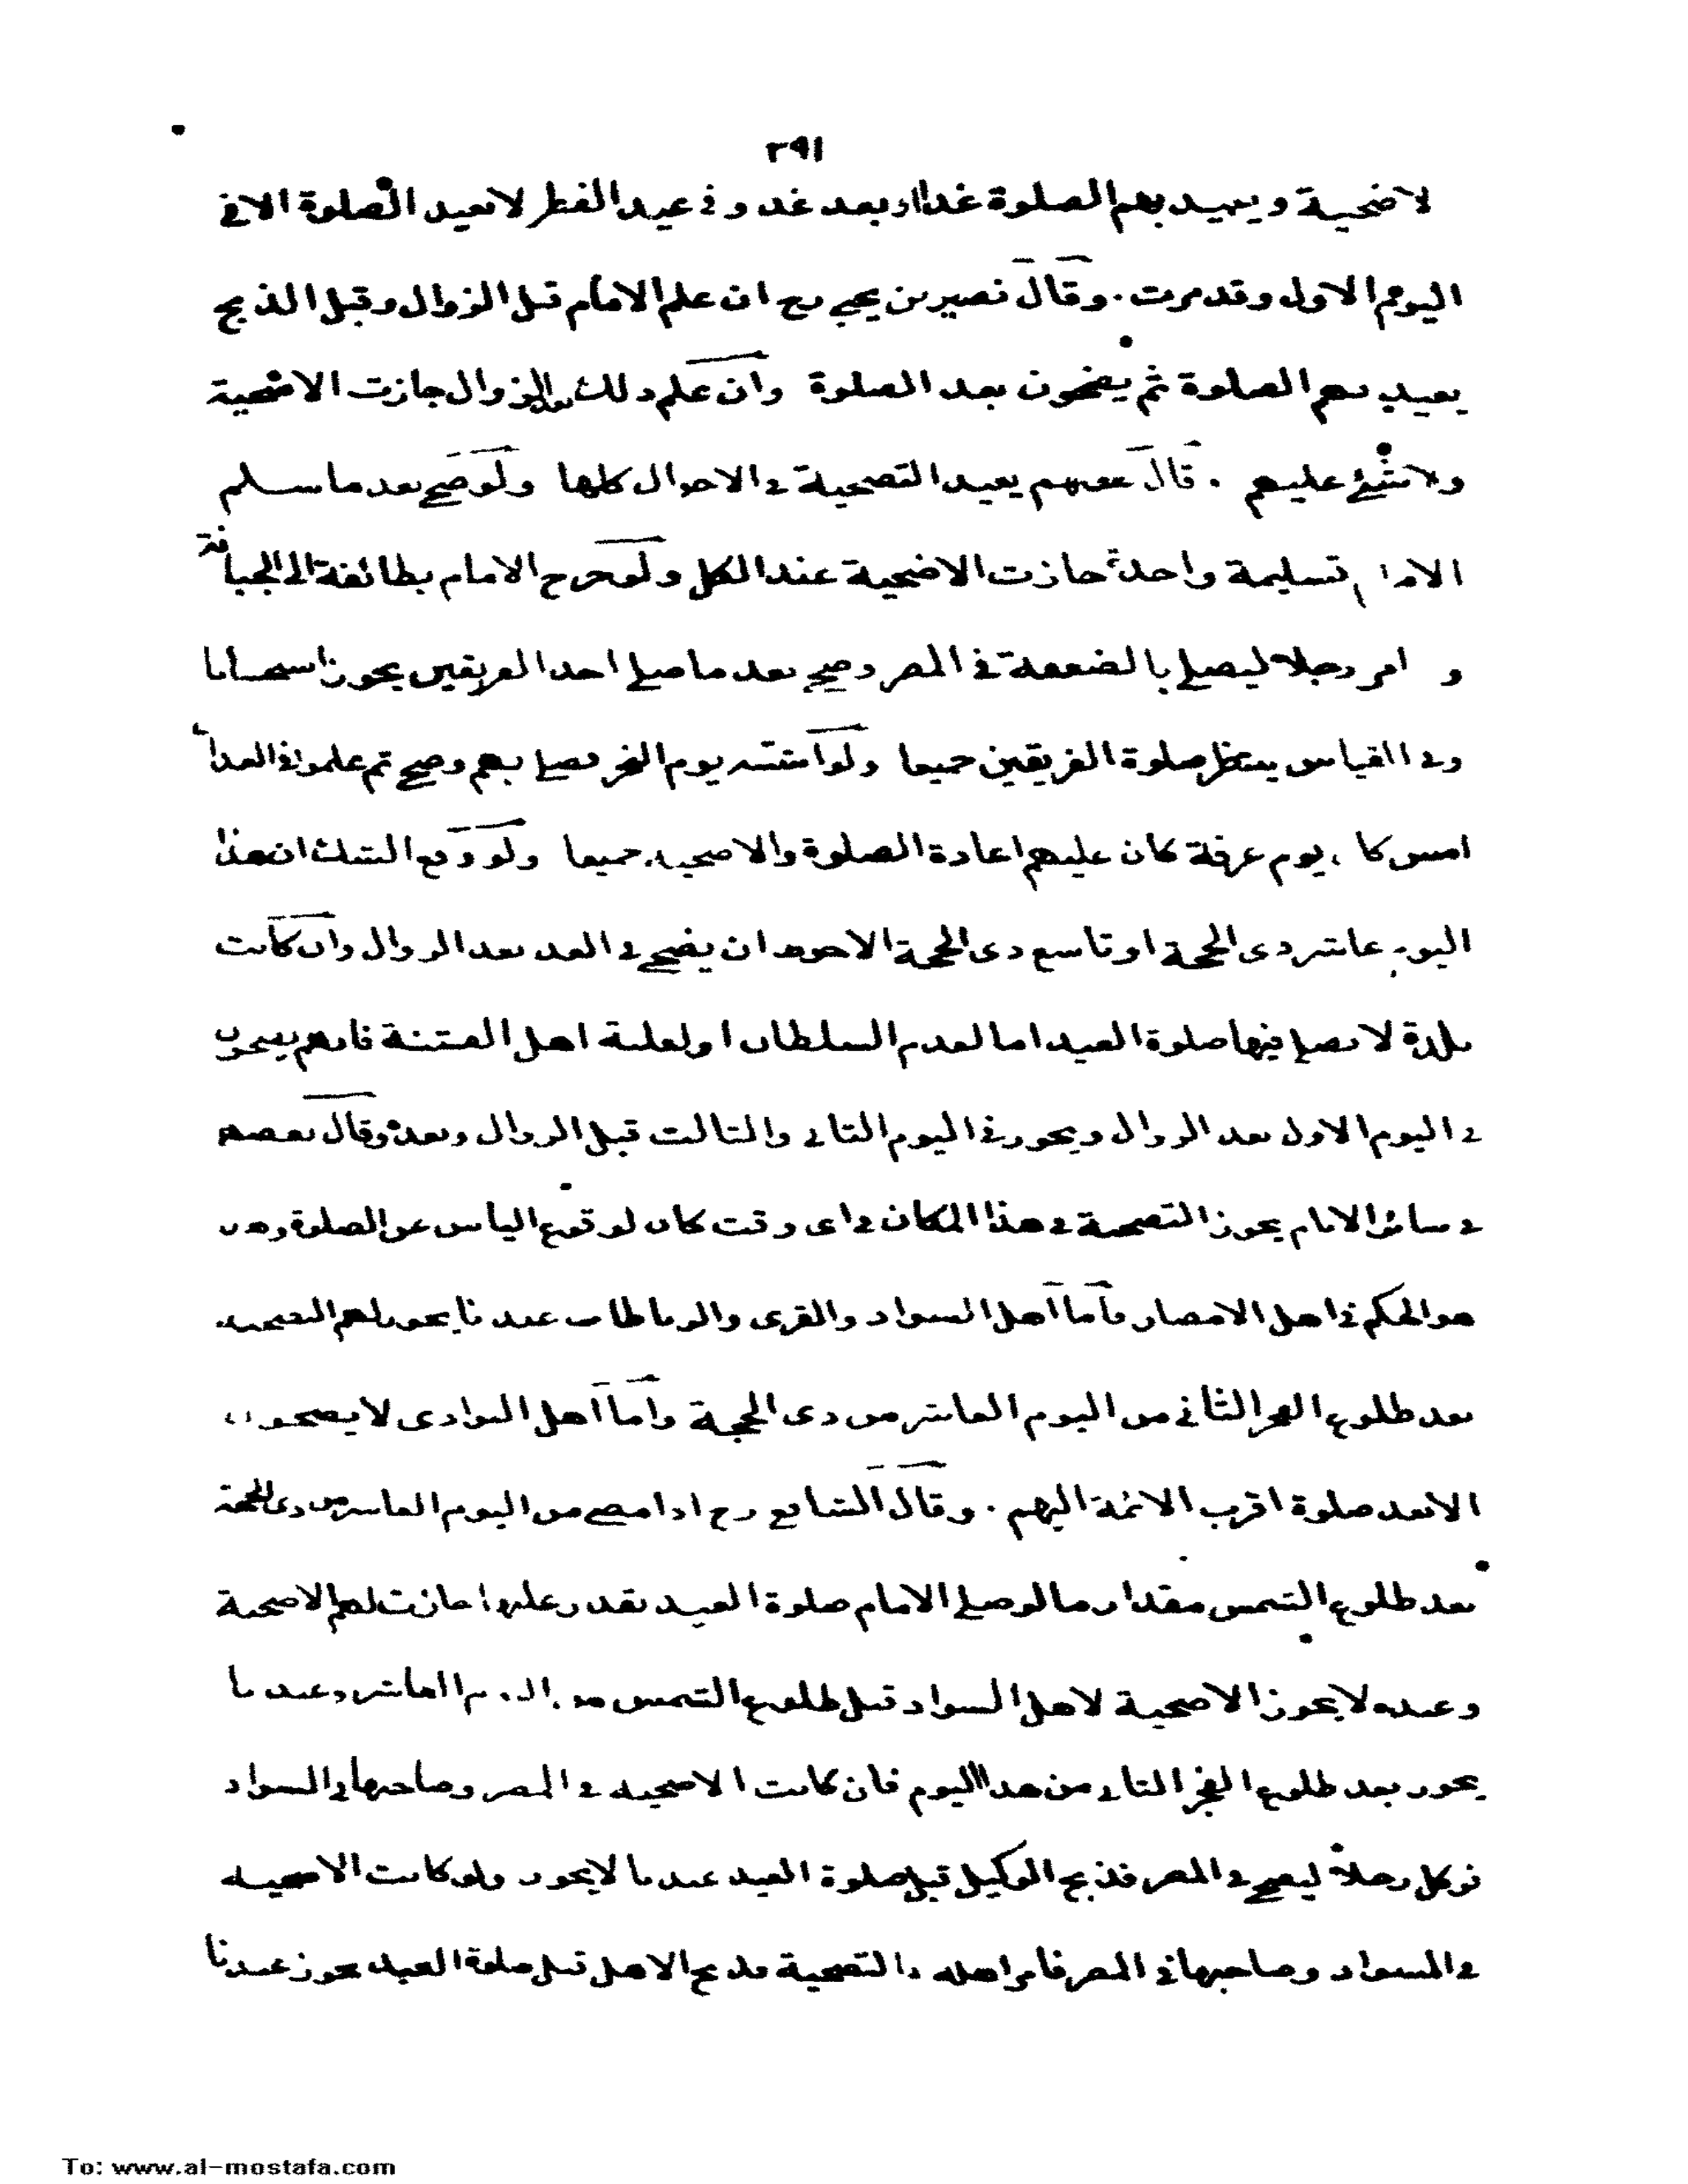 ٢٩١
لاضحية ويعيد بهم الصلوة غدا او بعد غد و فى عيد الفطر لا نعيد الصلوة الا فى
اليوم الاول وقد مرت . وقال نصير بن يحيى رح ان علم الامام قبل الزوال وقبل الذبح
يعيد بهم الصلوة ثم يضحون بعد الصلوة وان علم ذلك بعد الزوال جازت الاضحية
ولا شئ عليهم . قال بعضهم يعيد التضحية فى الاحوال كلها ولو ضحى بعد ما سلم
الامام تسليمة واحدة جازت الاضحية عند الكل ولو خرج الامام بطائفة الى الجبانة
و امر رجلا ليصلى بالضعفة فى المصر وضحى بعد ما صلى احد الفريقين يجوز استحسانا
وفى القياس ينتظر صلوة الفريقين جميعا ولو اشتبه يوم النحر فصلى بهم وضحى ثم علموا فى الغد ان
امس كان يوم عرفة كان عليهم اعادة الصلوة والاضحية جميعا ولو وقع الشك ان هذا
اليوم عاشر ذى الحجة او تاسع ذى الحجة الاحوط ان يضحى فى الغد بعد الزوال وان كانت
بلدة لا يصلى فيها صلوة العيد اما لعدم السلطان او لغلبة اهل الفتنة فانهم يضحون
فى اليوم الاول بعد الزوال ويجوز فى اليوم الثانى والثالث قبل الزوال وبعده وقال بعضهم
فى سائر الايام يجوز التضحية فى هذا المكان فى اى وقت كان لوقوع الياس عن الصلوة وهذا
هو الحكم فى اهل الامصار فاما اهل السواد والقرى والرباطات عندنا يجوز لهم التضحية
بعد طلوع الفجر الثانى من اليوم العاشر من ذى الحجة واما اهل البوادى لا يضحون
الا بعد صلوة اقرب الائمة اليهم . وقال الشافعى رح اذا مضى من اليوم العاشر من ذى الحجة
بعد طلوع الشمس مقدار ما لو صلى الامام صلوة العيد يقدر عليها جازت لهم الاضحية
وعنده لا يجوز الاضحية لاهل السواد قبل طلوع الشمس من اليوم العاشر وعندنا
يجوز بعد طلوع الفجر الثانى من هذا اليوم فان كانت الاضحية فى المصر وصاحبها فى السواد
فوكل رجلا ليضحى فى المصر فذبح الوكيل قبل صلوة العيد عندنا لا يجوز ولو كانت الاضحية
فى السواد وصاحبها فى المصر فامر اهله بالتضحية فذبح الاهل قبل صلوة العيد يجوز عندنا
To: www.al-mostafa.com